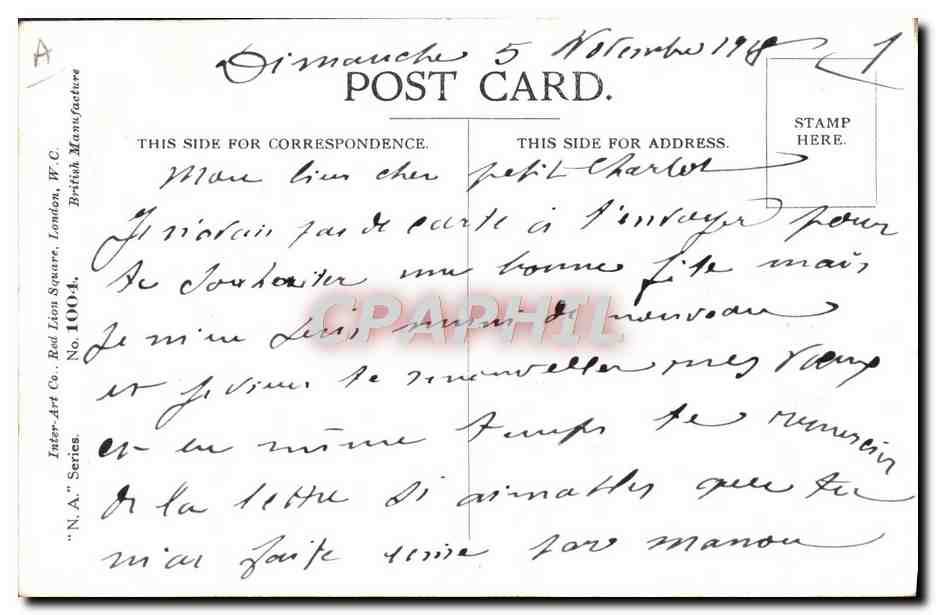 A
Dimanche 5 Novembre 1918
1
POST CARD.
THIS SIDE FOR CORRESPONDENCE.
THIS SIDE FOR ADDRESS.
STAMP
HERE.
Mon bien cher petit Charlot
Je n'avais pas de carte à t'envoyer pour
te souhaiter une bonne fête mais
Je m'en suis muni de nouveau
et je viens te renouveller mes vœux
et en même temps te remercier
de la lettre si aimables que tu
m'as faite écrire par manou
Inter-Art Co., Red Lion Square, London, W.C.
"N. A." Series. No. 1004. British Manufacture
CPAPHIL